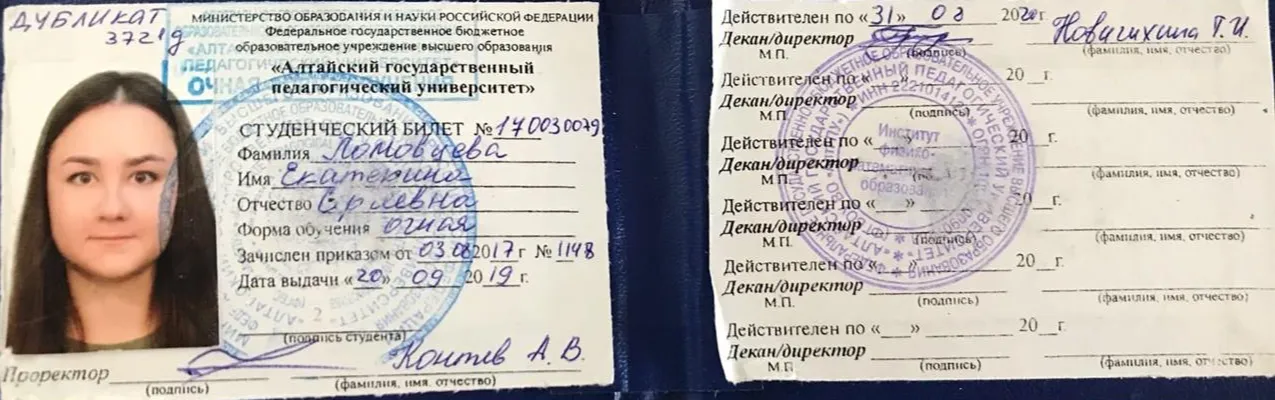 ДУБЛИКАТ
3721д
МИНИСТЕРСТВО ОБРАЗОВАНИЯ И НАУКИ РОССИЙСКОЙ ФЕДЕРАЦИИ
Федеральное государственное бюджетное
образовательное учреждение высшего образования
«Алтайский государственный
педагогический университет»
СТУДЕНЧЕСКИЙ БИЛЕТ № 170030079
Фамилия Ломовцева
Имя Екатерина
Отчество
Форма обучения очная
Зачислен приказом от 03.08 2017 г № 1148
Дата выдачи «20» 09 2019 г.
(подпись студента)
Проректор Контев А. В.
(подпись) (фамилия, имя, отчество)
Действителен по «31» 08 202 г.
Декан/директор Новичихина Т. И.
М.П. (подпись) (фамилия, имя, отчество)
Действителен по «__» 20__г.
Декан/директор
М.П. (подпись) (фамилия, имя, отчество)
Действителен по «__» 20__г.
Декан/директор
М.П. (подпись) (фамилия, имя, отчество)
Действителен по «__» 20__г.
Декан/директор
М.П. (подпись) (фамилия, имя, отчество)
Действителен по «__» 20__г.
Декан/директор
М.П. (подпись) (фамилия, имя, отчество)
Действителен по «__» 20__г.
Декан/директор
М.П. (подпись) (фамилия, имя, отчество)
Институт
физико-
образования